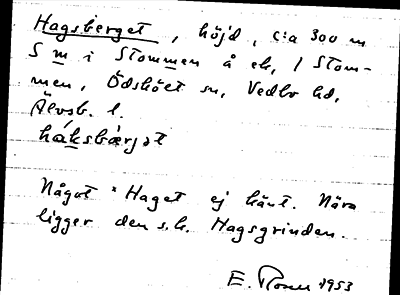 Hagsberget, höjd, c:a 300 m
S m i Stommen å ek, 1 Stom-
men, Ödsköet sn, Vedbo hd,
Älvsb. l.
háksbærjət
Något *Haget ej känt. Nära
ligger den s.k. Hagsgrinden.
E. 1953